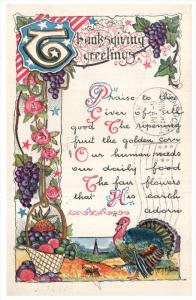 Thanksgiving
Greetings
Praise to the
Giver of all
good The ripening
fruit the golden corn
Our human needs
our daily food
The fair flowers
that His earth
adorn